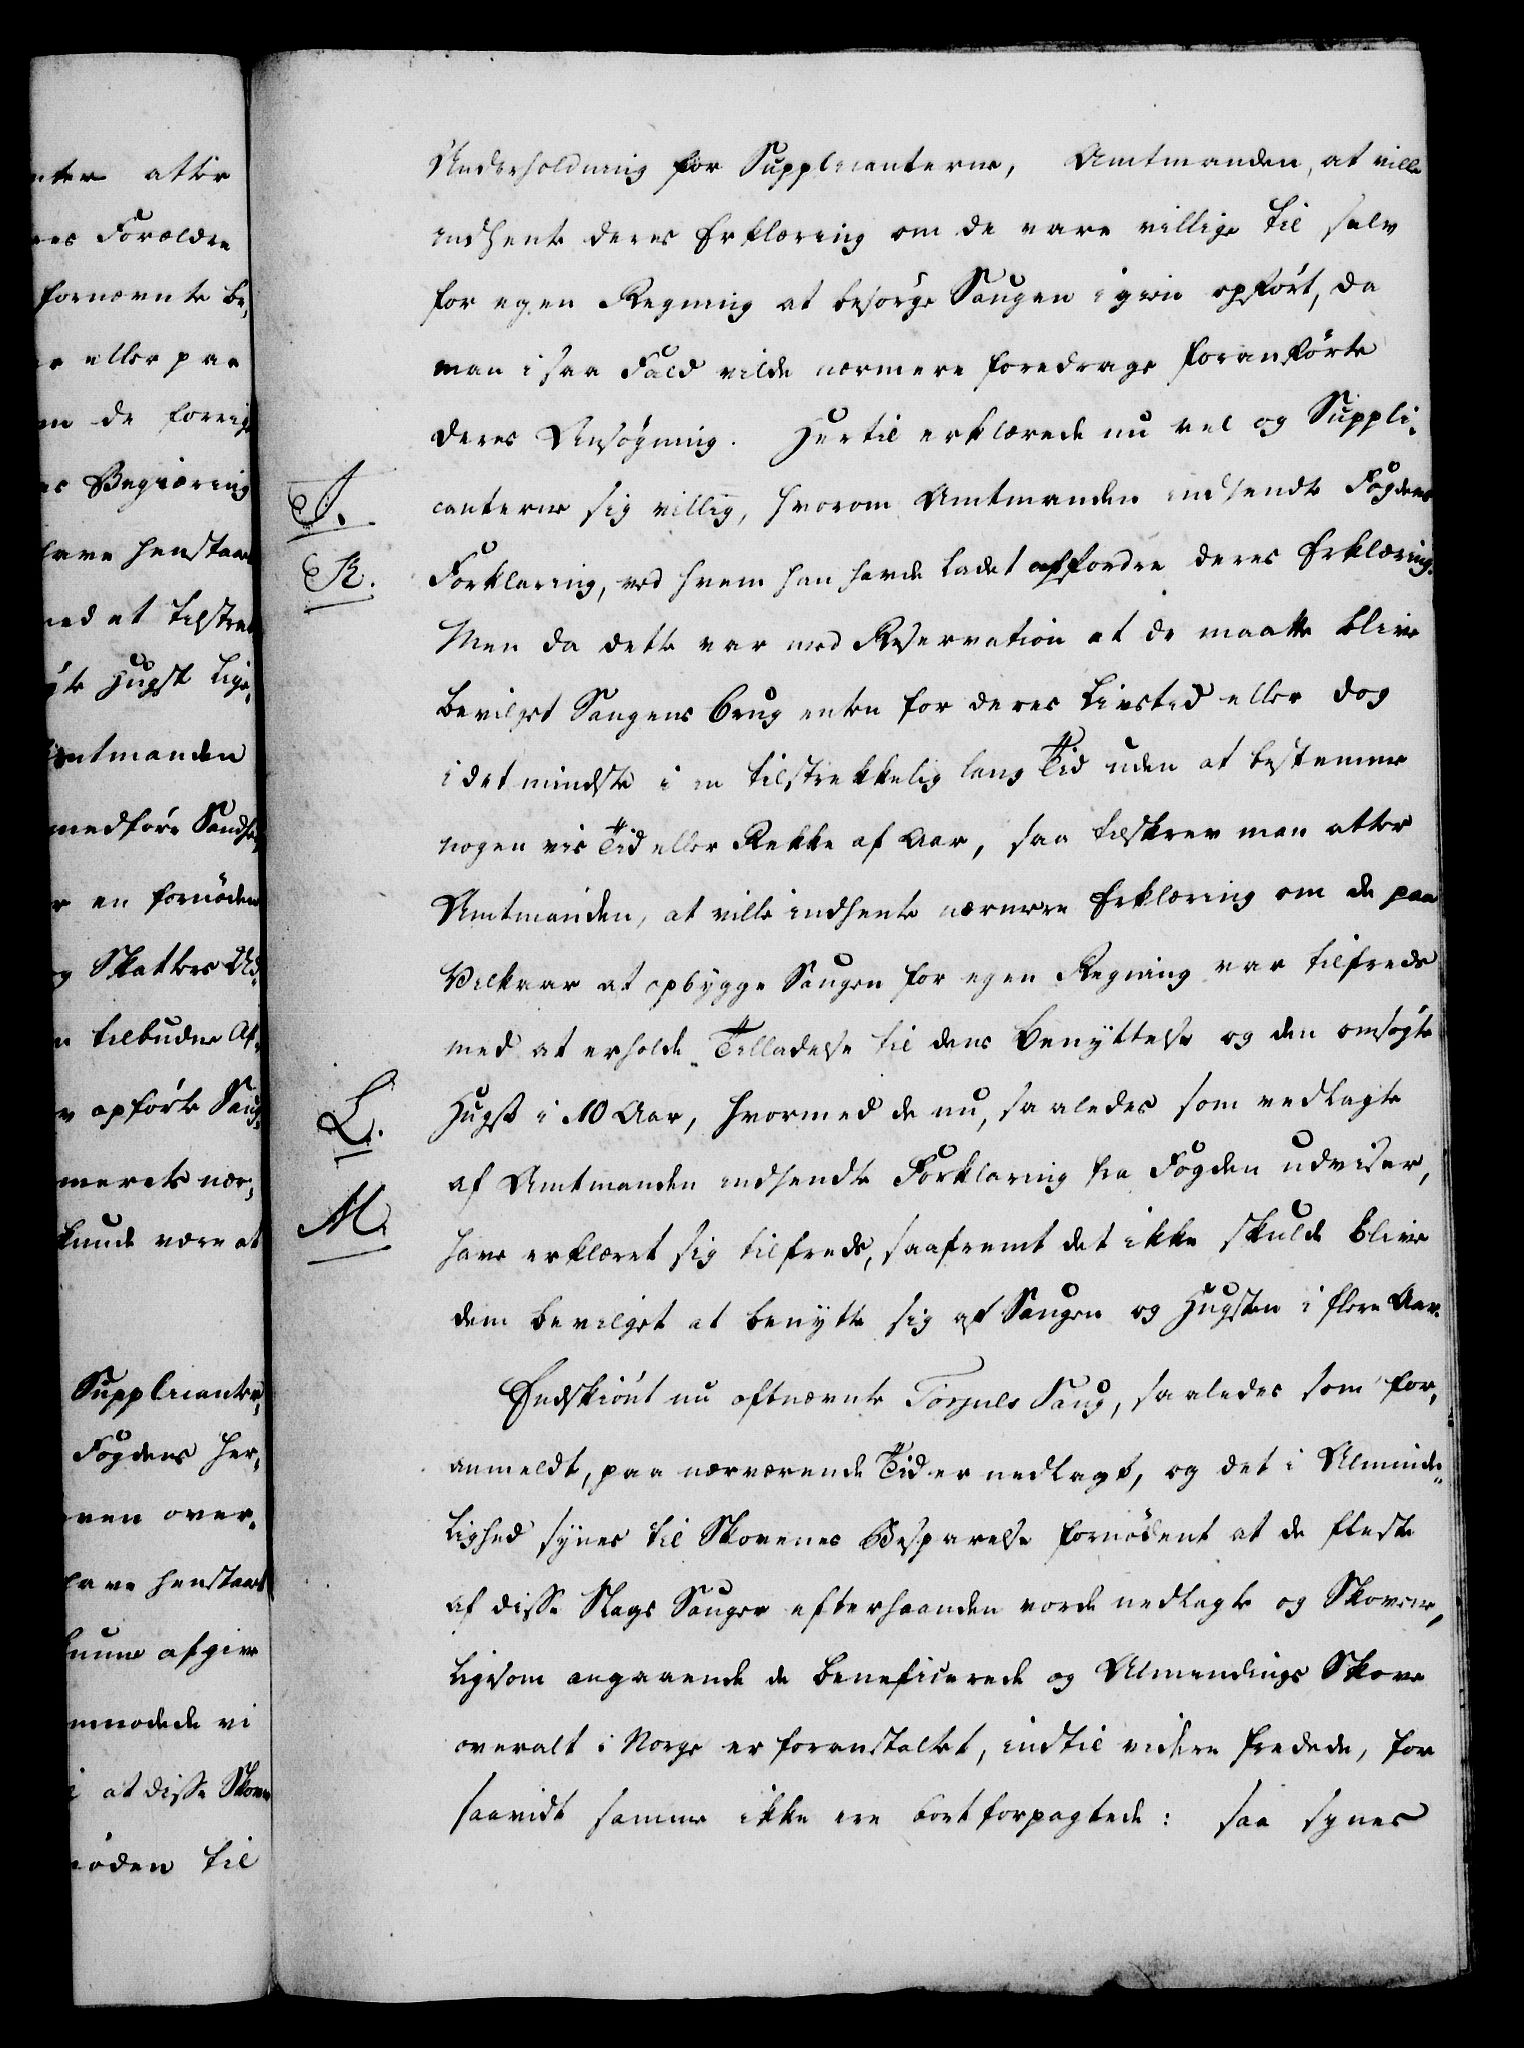 nter atter
res Forældre
fornævnte be„
er eller paa
m de forrige
es Begiæring
have henstaaet
med at tilstræk
gte Hugst lige„
Amtmanden
medføre Sandhed,
r en fornøden
og Skatters Ud„
n tilbudne Af„
v opførte Saug
merets nær„
kunde være at
Supplicanter„
Fogdens Her„
ven over„
have henstaaet
kunne afgive
modede vi
i at disse Skove
nöden til
Underholdning for Supplicanterne, Amtmanden, at ville
indhente deres Erklæring om de vare villige til selv
for egen Regning at besörge Saugen igien opfört, da
man i saa Fald vilde nærmere foredrage foranförte
deres Ansögning. Hertil erklærede nu vel og Suppli„
J. canterne sig villig, hvorom Amtmanden indsendte Fogdens
K. Forklaring, ved hvem han havde ladet affordre deres Erklæring.
Men da dette var med Reservation at de maatte blive
bevilget Saugens Brug enten for deres Livstid eller dog
i det mindste i en tilstrekkelig lang Tid uden at bestemme
nogen vis Tid eller Rekke af Aar, saa tilskrev man atter
Amtmanden, at ville indhente nærmere Erklæring om de paa
Vilkaar at opbygge Saugen for egen Regning var tilfreds
med at erholde Tilladelse til dens Benyttelse og den omsögte
L. Hugst i 10 Aar, hvormed de nu, saaledes som vedlagte
af Amtmanden indsendte Forklaring fra Fogden udviser,
M. have erklæret sig tilfreds, saafremt det ikke skulde blive
dem bevilget at benytte sig af Saugen og Hugsten i flere Aar.
Endskiönt nu oftnævnte Torjuls Saug, saaledes som for„
anmeldt, paa nærværende Tid er nedlagt, og det i Alminde„
lighed synes til Skovenes Besparelse fornödent at de fleste
af disse Slags Sauger efterhaanden vorde nedlagte og Skovene,
ligesom angaaende de beneficerede og Almindings Skove
overalt i Norge er foranstaltet, indtil videre fredede, for
saavidt samme ikke ere bortforpagtede: saa synes